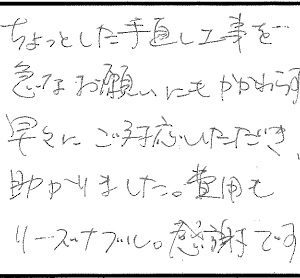 ちょっとした手直し工事を
急なお願いにもかかわらず
早々にご対応いただき、
助かりました。費用も
リーズナブル。感謝です